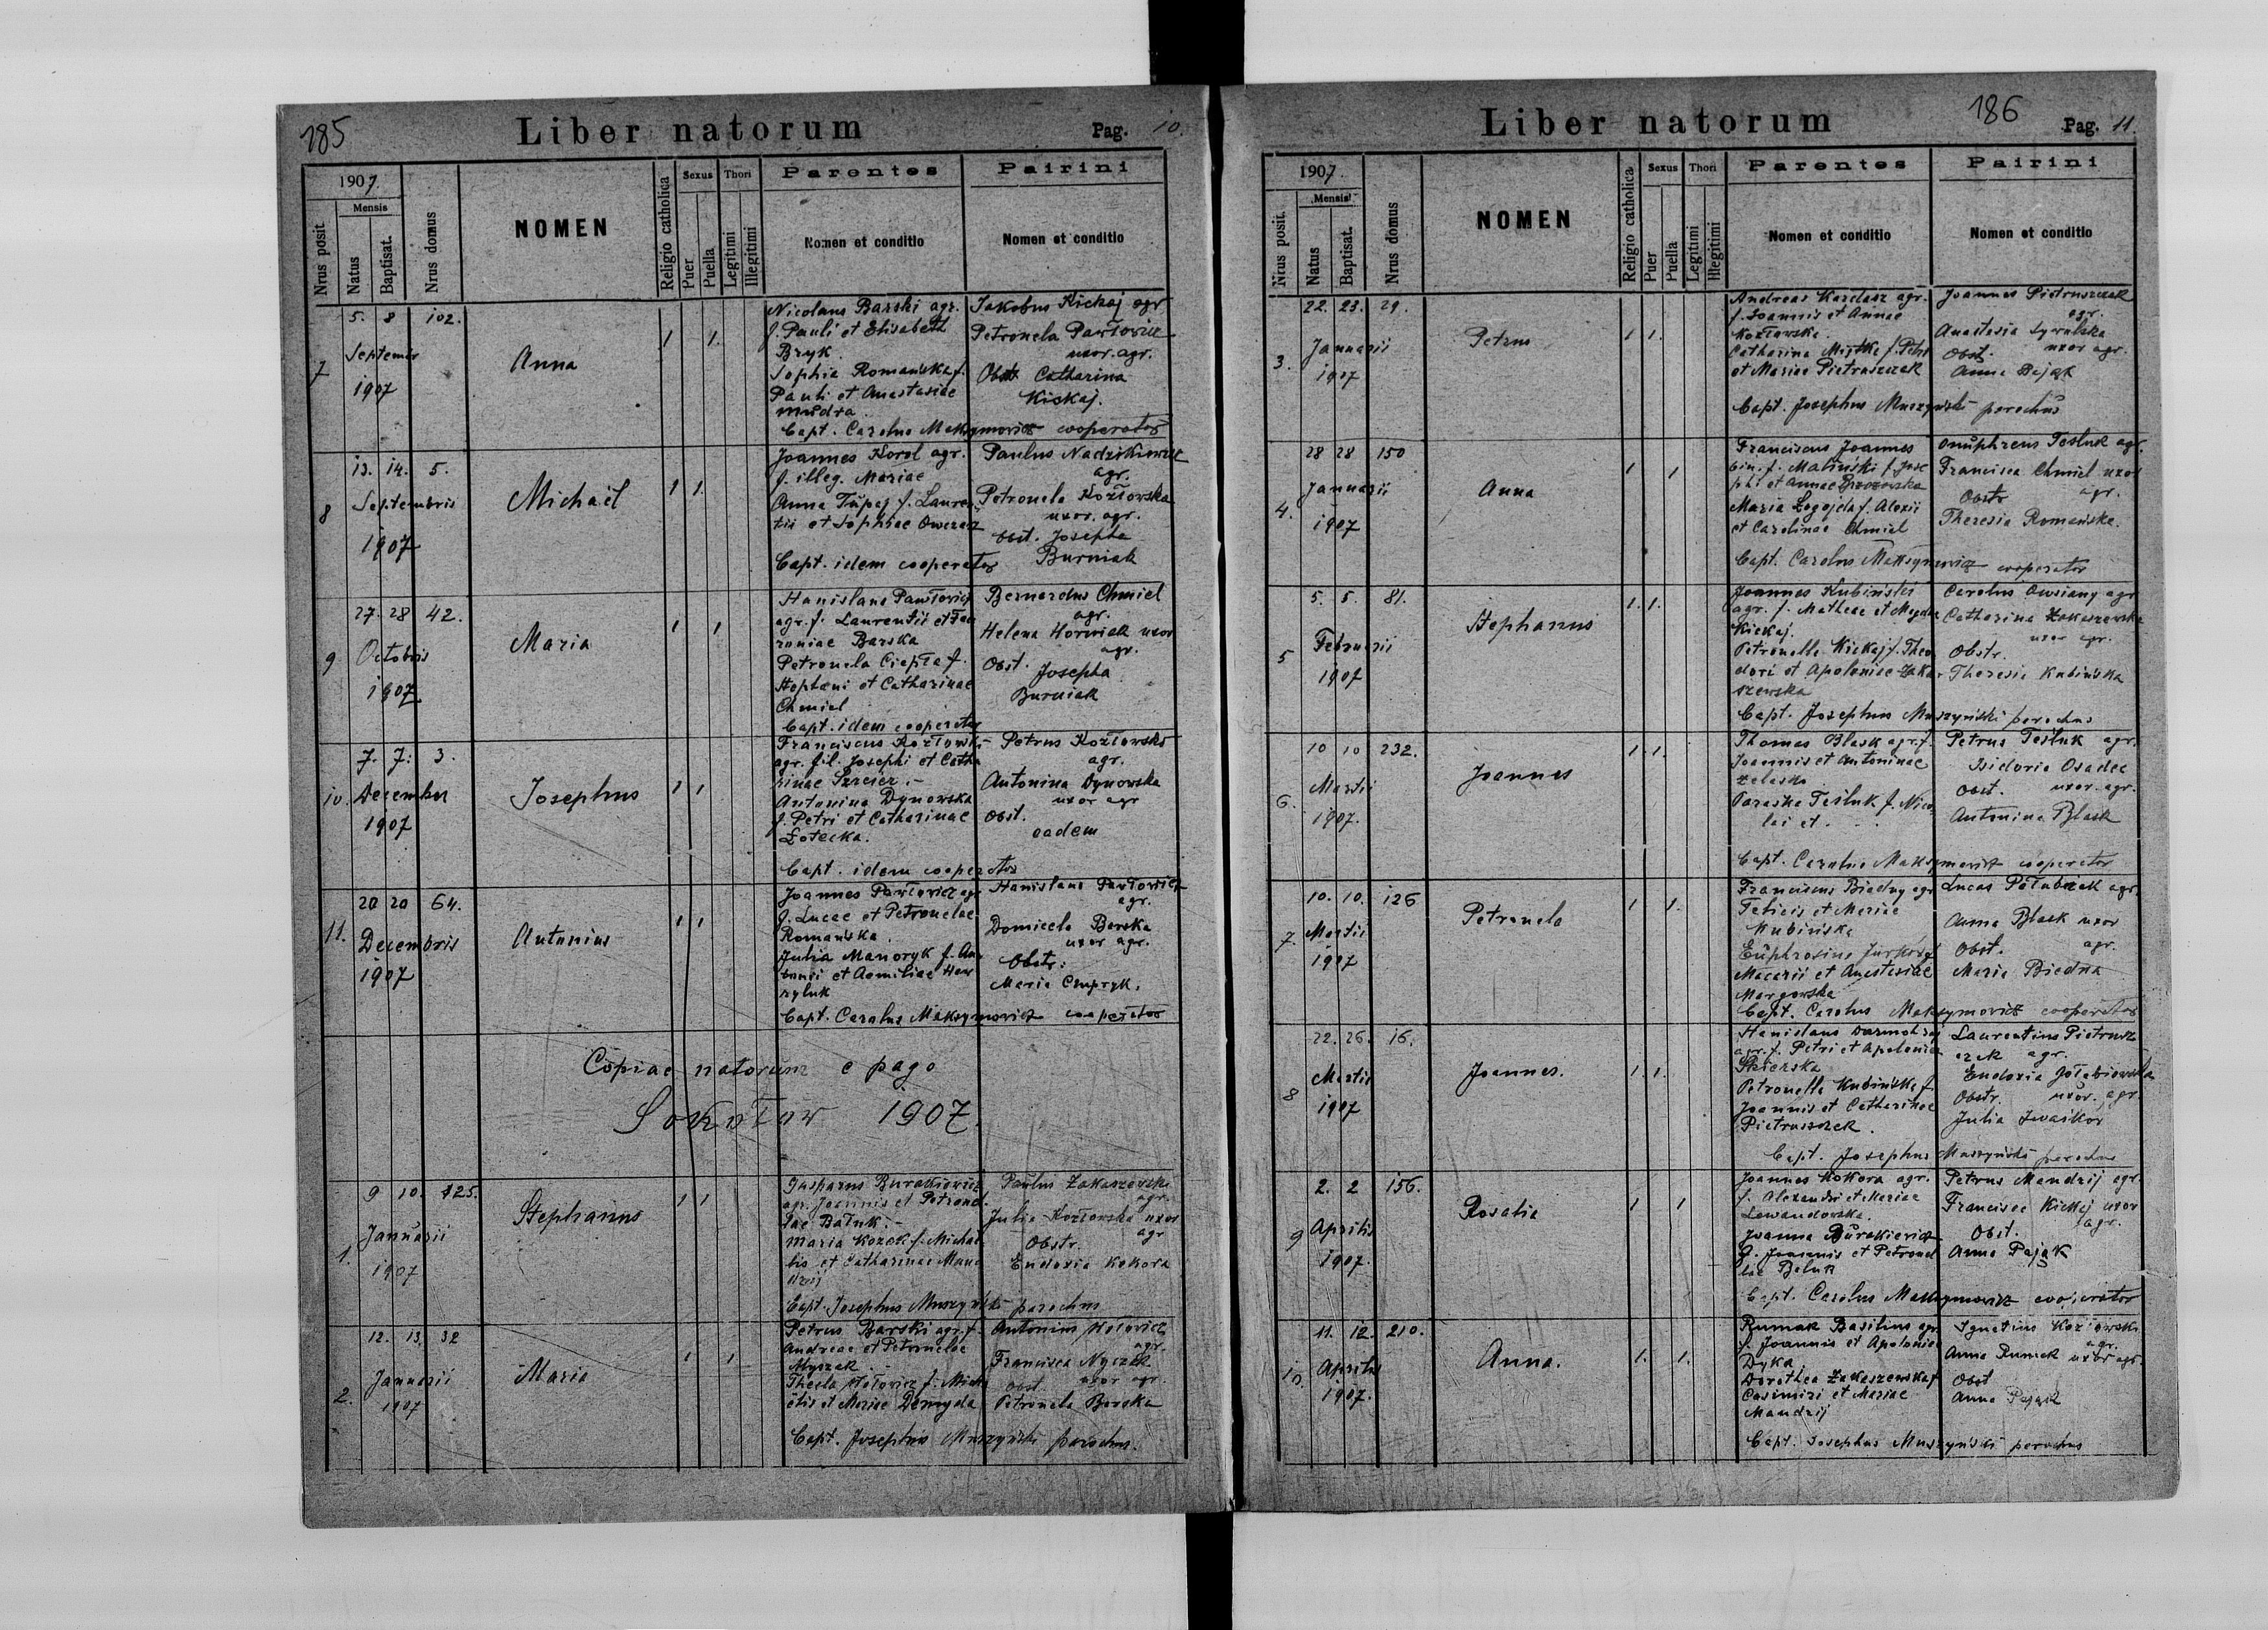 185
Liber natorum
Pag. 10.
1907.
Nrus posit
Mensis
Natus
Baptisat.
Nrus domus
NOMEN
Religio catholica
Sexus
Puer
Puella
Thori
Legitimi
Illegitimi
Parentes
Nomen et conditio
Patrini
Nomen et conditio
7
5. 8 102.
Septembr
1907
Anna
1 1.
Nicolaus Barski agr.
f. Pauli et Elisabeth
Bryk.
Sophia Romańska f.
Pauli et Anastasiae
Mudra.
Jakobus Kickaj agr
Petronela Pawłowicz
uxor. agr.
Obst Catharina
Kickaj.
Bapt. Carolus Maksymowicz cooperator
8
13. 14. 5.
Septembris
1907
Michaël
1 1.
Joannes Korol agr.
f. illeg. Mariae
Anna Tupaj f. Lauren
tii et Sophiae Owczarz
Paulus Nadzikiewicz
agr.
Petronela Kozłowska
uxor. agr.
Obst. Josepha
Burniak
Bapt. idem cooperator
9
27. 28 42.
Octobris
1907
Maria
1 1
Stanislaus Pawłowicz
agr. f. Laurentii et
Barska
Petronela Ciepła f.
Stephani et Catharinae
Chmiel
Bernardus Chmiel
agr.
Helena Horniak uxor
agr.
Obst. Josepha
Burniak
Bapt. idem cooperator
10.
7. 7. 3.
December
1907
Josephus
1 1
Franciscus Kozłowski
agr. fil. Josephi et Catha
rinae
Antonina Dynowska
f. Petri et Catharinae
Łotecka.
Petrus Kozłowski
agr.
Antonina Dynowska
uxor agr
Obst.
eadem
Bapt. idem cooperator
11.
20 20 64.
Decembris
1907
Antonius
1 1
Joannes Pawłowicz agr
f. Lucae et Petronelae
Romańska.
Julia Manoryk f. An
tonii et Aemiliae Haw
ryluk
Stanislaus Pawłowicz
agr.
Domicela Barska
uxor agr.
Obstr:
Maria Cmpryk.
Bapt. Carolus Maksymowicz cooperator
Copiae natorum e pago
Sokołów 1907.
1.
9 10. 125.
Januarii
1907
Stephanus
1 1
Gasparus Burakiewicz
agr. Joannis et Petronel
lae Bałuk.-
Maria Kozak f. Michae
lis et Catharinae Man
drij
Paulus Zakaszewski
agr.
Julia Kozłowska uxor
agr
Obstr.
Eudoxia Kokora
Bapt. Josephus Muszyński parochus
2.
12. 13. 32
Januarii
1907
Maria
1 1
Petrus Barski agr. f.
Andreae et Petronelae
Myszak.-
Thecla Hołowicz f. Mich
aëlis et Mariae Demyda
Antonius Hołowicz
agr.
Francisca Nyczak
uxor agr.
Obst.
Petronela Barska
Bapt. Josephus Muszyński parochus.
186
Liber natorum
Pag. 11.
1907.
Nrus posit.
Mensis
Natus
Baptisat.
Nrus domus
NOMEN
Religio catholica
Sexus
Puer
Puella
Thori
Legitimi
Illegitimi
Parentes
Nomen et conditio
Patrini
Nomen et conditio
3.
22. 23. 29.
Januarii
1907
Petrus
1 1.
Andreas Kardasz agr.
f. Joannis et Annae
Kozłowska.
Catharina f. Petri
et Mariae Pietruszczak
Joannes Pietruszczak
agr.
Anastasia
uxor agr.
Obst.
Anna Pająk
Bapt. Josephus Muszyński parochus
4.
28 28 150
Januarii
1907
Anna
1 1
Franciscus Joannes
bin. f. Maliński f. Jose
phi et Annae Brzozowska
Maria Legojda f. Alexii
et Carolinae Chmiel
Onuphreus Tesluk agr.
Francisca Chmiel uxor
agr.
Obstr
Theresia Romańska.
Bapt. Carolus Maksymowicz cooperator
5
5. 5. 81.
Februarii
1907
Stephanus
1. 1.
Joannes Kubiński
agr. f. Matheae et Magda
Kickaj.
Petronella Kickaj f. Theo
dori et Apoloniae Zaka
szewska
Carolus Owsiany agr
Catharina Zakaszewska
uxor agr.
Obstr.
Theresia Kubińska
Bapt. Josephus Muszyński parochus
6.
10 10 232.
Martii
1907.
Joannes
1. 1.
Thomas Błask agr. f.
Joannis et Antoninae
Żelaska
Paraska Tesluk f. Nico
lai et . . .
Petrus Tesluk agr.
Isidoria Osadec
uxor. agr.
Obst.
Antonina Błask
Bapt. Carolus Maksymowicz cooperator
7.
10. 10. 126
Martii
1907
Petronela
1 1.
Franciscus Biedny agr
Felicis et Mariae
Kubińska
Euphrosina Jurków f.
Macarii et Anastasiae
Margowska
Lucas Połubiak agr.
Anna Błask uxor
agr.
Obst.
Maria Biedna
Bapt. Carolus Maksymowicz cooperator
8
22. 26. 16.
Martii
1907
Joannes.
1. 1.
Stanislaus Darmohraj
agr. f. Petri et Apolonia
Skierska
Petronella Kubińska f.
Joannis et Catharinae
Pietruszczek.
Laurentius Pietrusz
czak agr.
Eudoxia Gołębiowska
uxor. agr.
Obstr.
Julia Iwaśków
Bapt. Josephus Muszyński parochus
9
2. 2 156.
Aprilis
1907.
Rosalia
1 1
Joannes Kokora agr.
f. Alexandri et Mariae
Lewandowska.
Joanna Burakiewicz
f. Joannis et Petronel
lae Bałuk
Petrus Mandzij agr.
Francisca Kickaj uxor
agr.
Obst.
Anna Pająk
Bapt. Carolus Maksymowicz cooperator
10.
11. 12. 210.
Aprilis
1907.
Anna.
1. 1.
Rumak Basilius agr.
f. Joannis et Apoloniae
Dyka
Dorothea Zakaszewska f
Casimiri et Mariae
Mandzij
Ignatius Kozłowski
agr.
Anna Rumak uxor agr.
Obst
Anna Pająk
Bapt. Josephus Muszyński parochus